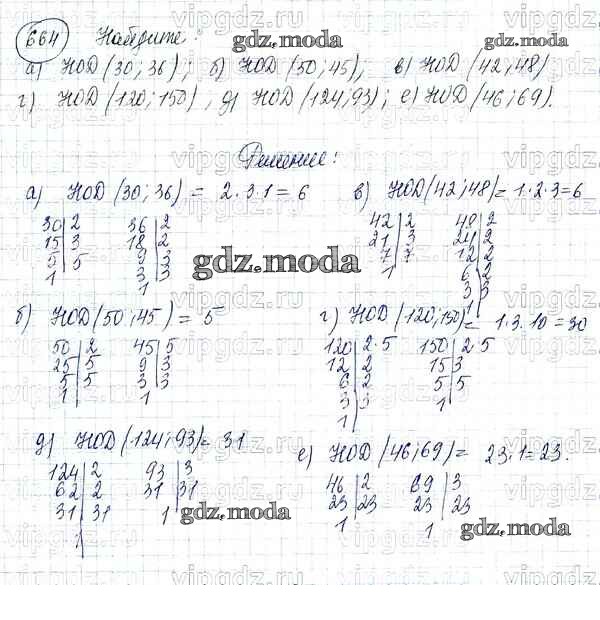 664 Найдите:
а) НОД (30; 36); б) НОД (50; 45); в) НОД (42; 48)
г) НОД (120; 150), д) НОД (124; 93); е) НОД (46; 69).
Решение:
а) НОД (30; 36) = 2·3·1 = 6
30 | 2 36 | 2
15 | 3 18 | 2
5 | 5 9 | 3
1 3 | 3
1
в) НОД (42; 48) = 1·2·3 = 6
42 | 2 48 | 2
21 | 3 24 | 2
7 | 7 12 | 2
1 6 | 2
3 | 3
б) НОД (50; 45) = 5
50 | 2 45 | 5
25 | 5 9 | 3
5 | 5 3 | 3
1 1
г) НОД (120; 150) = 1·3·10 = 30
120 | 2·5 150 | 2·5
12 | 2 15 | 3
6 | 2 5 | 5
3 | 3 1
1
д) НОД (124; 93) = 31
124 | 2 93 | 3
62 | 2 31 | 31
31 | 31 1
1
е) НОД (46; 69) = 23·1 = 23.
46 | 2 69 | 3
23 | 23 23 | 23
1 1
gdz.moda
gdz.moda
gdz.moda
gdz.moda
gdz.moda
gdz.moda
vipgdz.ru